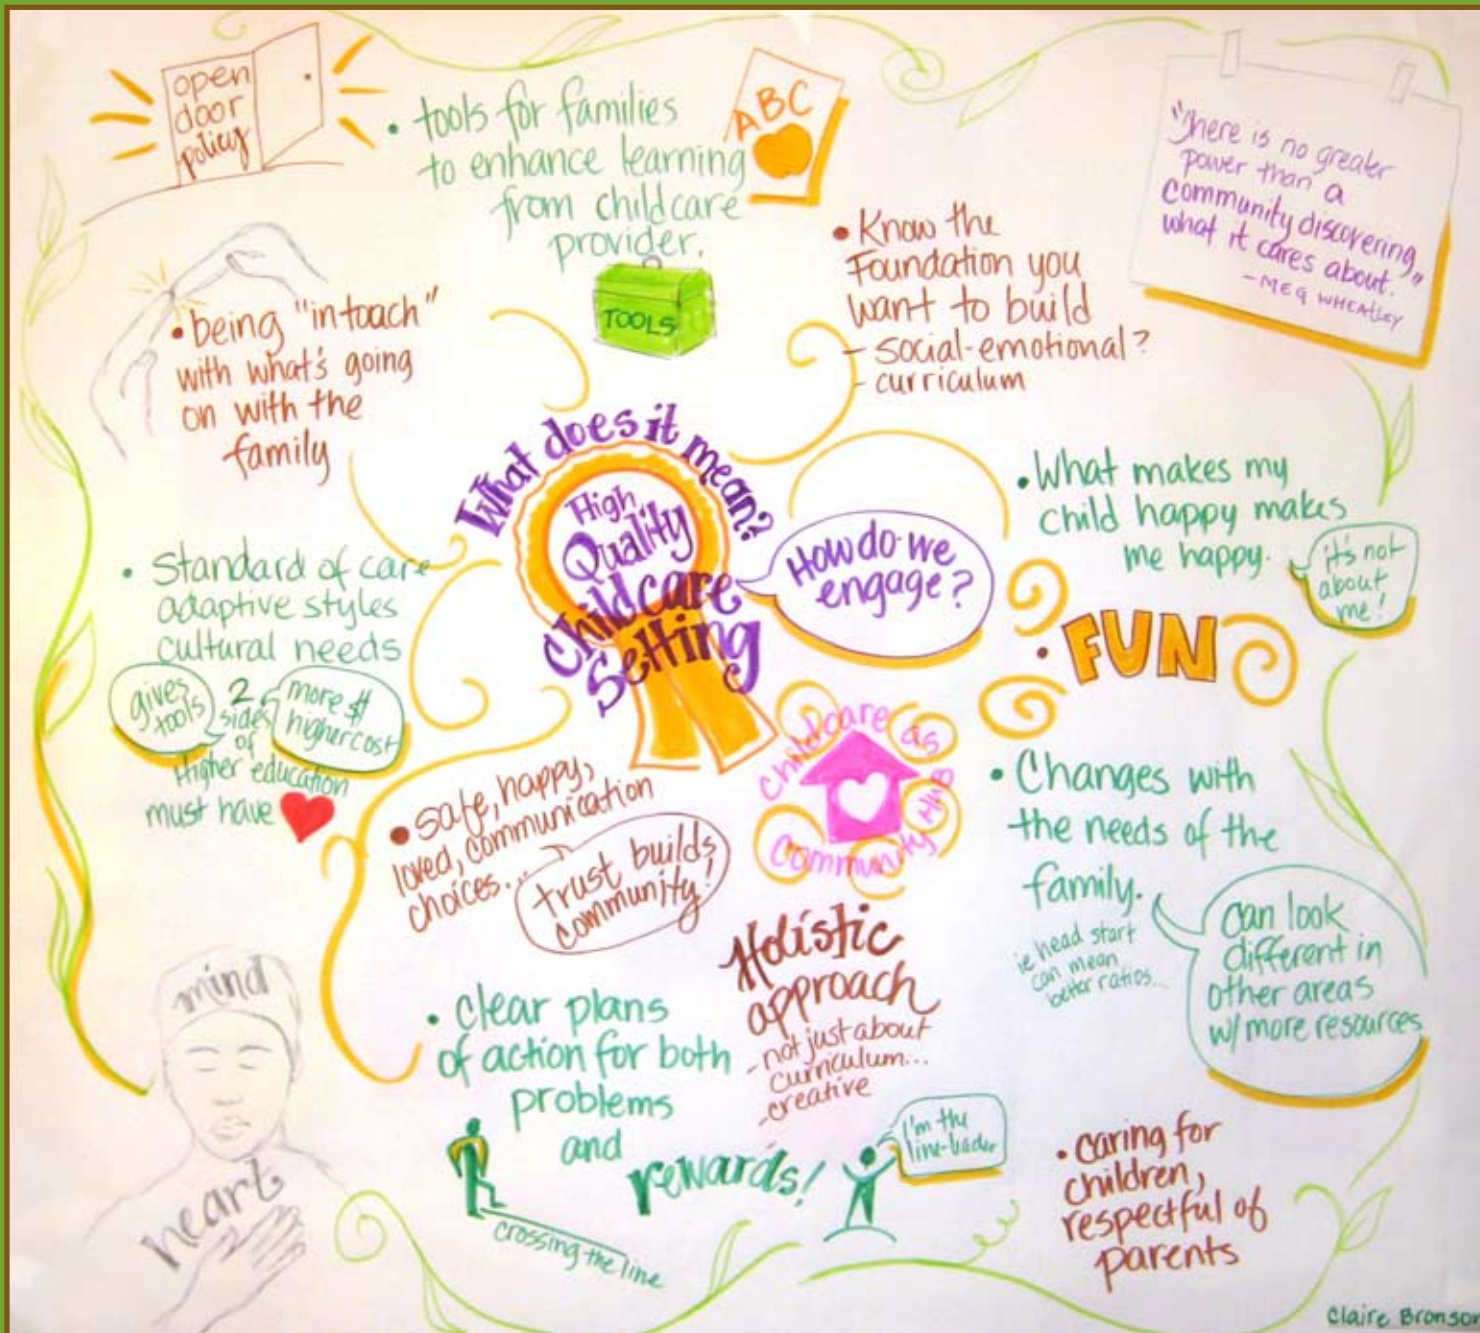 open
door
policy
• tools for families
to enhance learning
from childcare
provider.
ABC
TOOLS
"There is no greater
power than a
community discovering
what it cares about."
- MEG WHEATLEY
• being "in toach"
with what's going
on with the
family
• Know the
Foundation you
want to build
- social-emotional?
- curriculum
What does it mean?
High
Quality
Childcare
Setting
How do we
engage?
• What makes my
child happy makes
me happy.
it's not
about
me!
• FUN
• Standard of care
adaptive styles
cultural needs
gives
tools
2
sides
of
more $
higher cost
Higher education
must have
• safe, happy,
loved, communication
choices...
trust builds
community!
Childcare as
Community Hub
• Changes with
the needs of the
family.
ie head start
can mean
better ratios...
can look
different in
other areas
w/ more resources
Holistic
approach
- not just about
curriculum...
- creative
mind
heart
• clear plans
of action for both
problems
and
rewards!
crossing the line
I'm the
line-leader
• caring for
children,
respectful of
parents
Claire Bronson